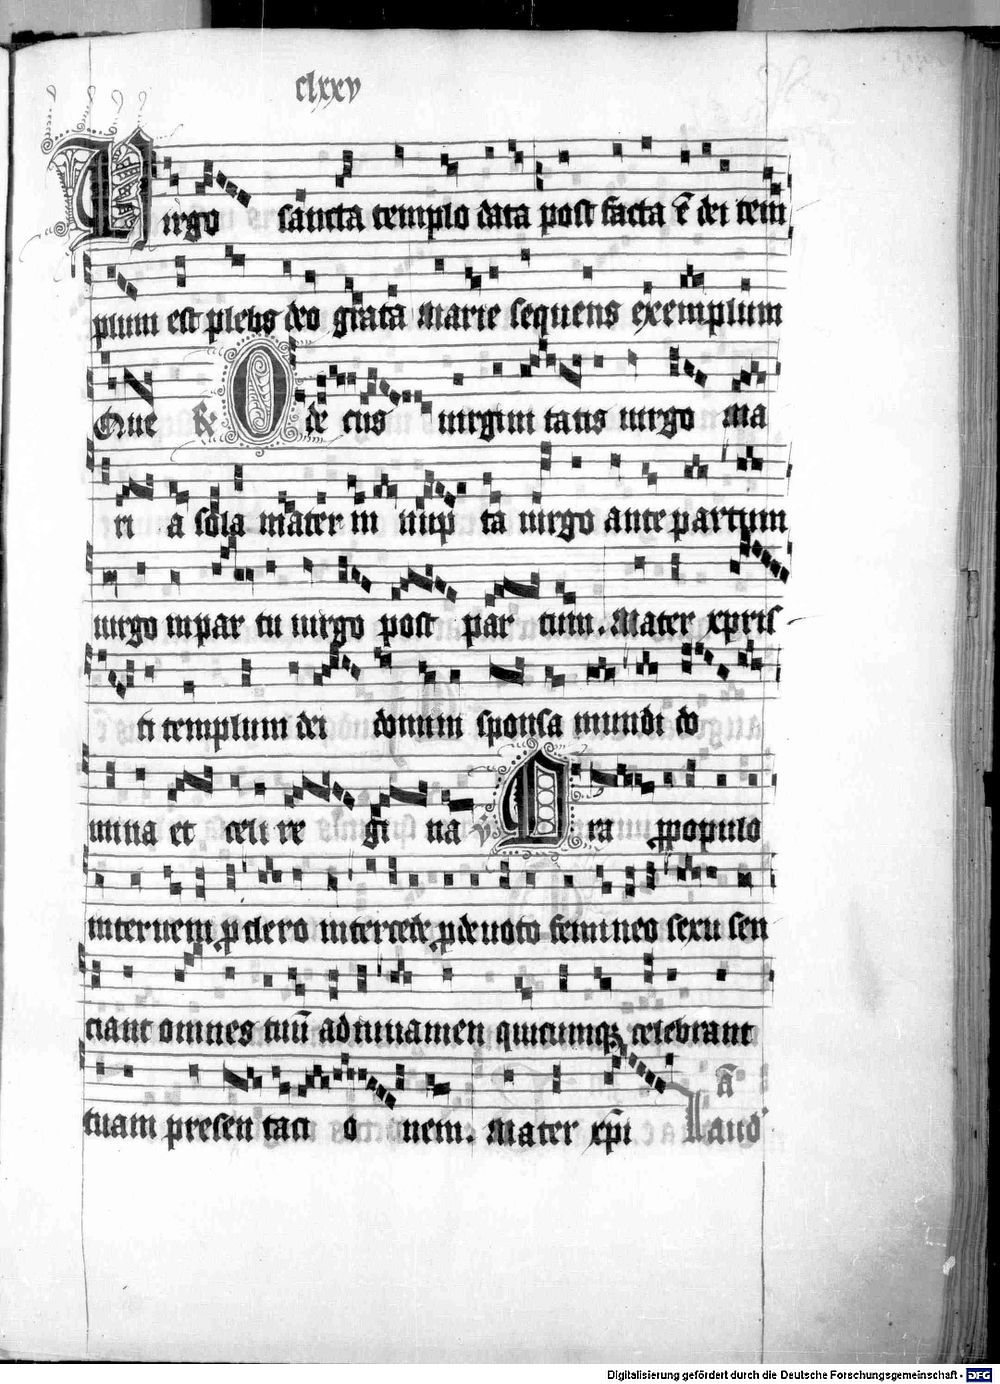 clxxv
Uirgo sancta templo data post facta ē dei tem
plum est plebs deo grata marie sequens exemplum
Que R O de cus uirgini tatis uirgo ma
ri a sola mater in nup ta uirgo ante partum
uirgo in par tu uirgo post par tum. Mater xpris
ti templum dei donum sponsa mundi do
mina et celi re gi na V Ora p populo
interueni p clero intercede p deuoto femineo sexu sen
ciant omnes tuū ad iuuamen quicumqꝫ celebrant
tuam presen taci o nem. Mater xpi ā
Laud
Digitalisierung gefördert durch die Deutsche Forschungsgemeinschaft - DFG